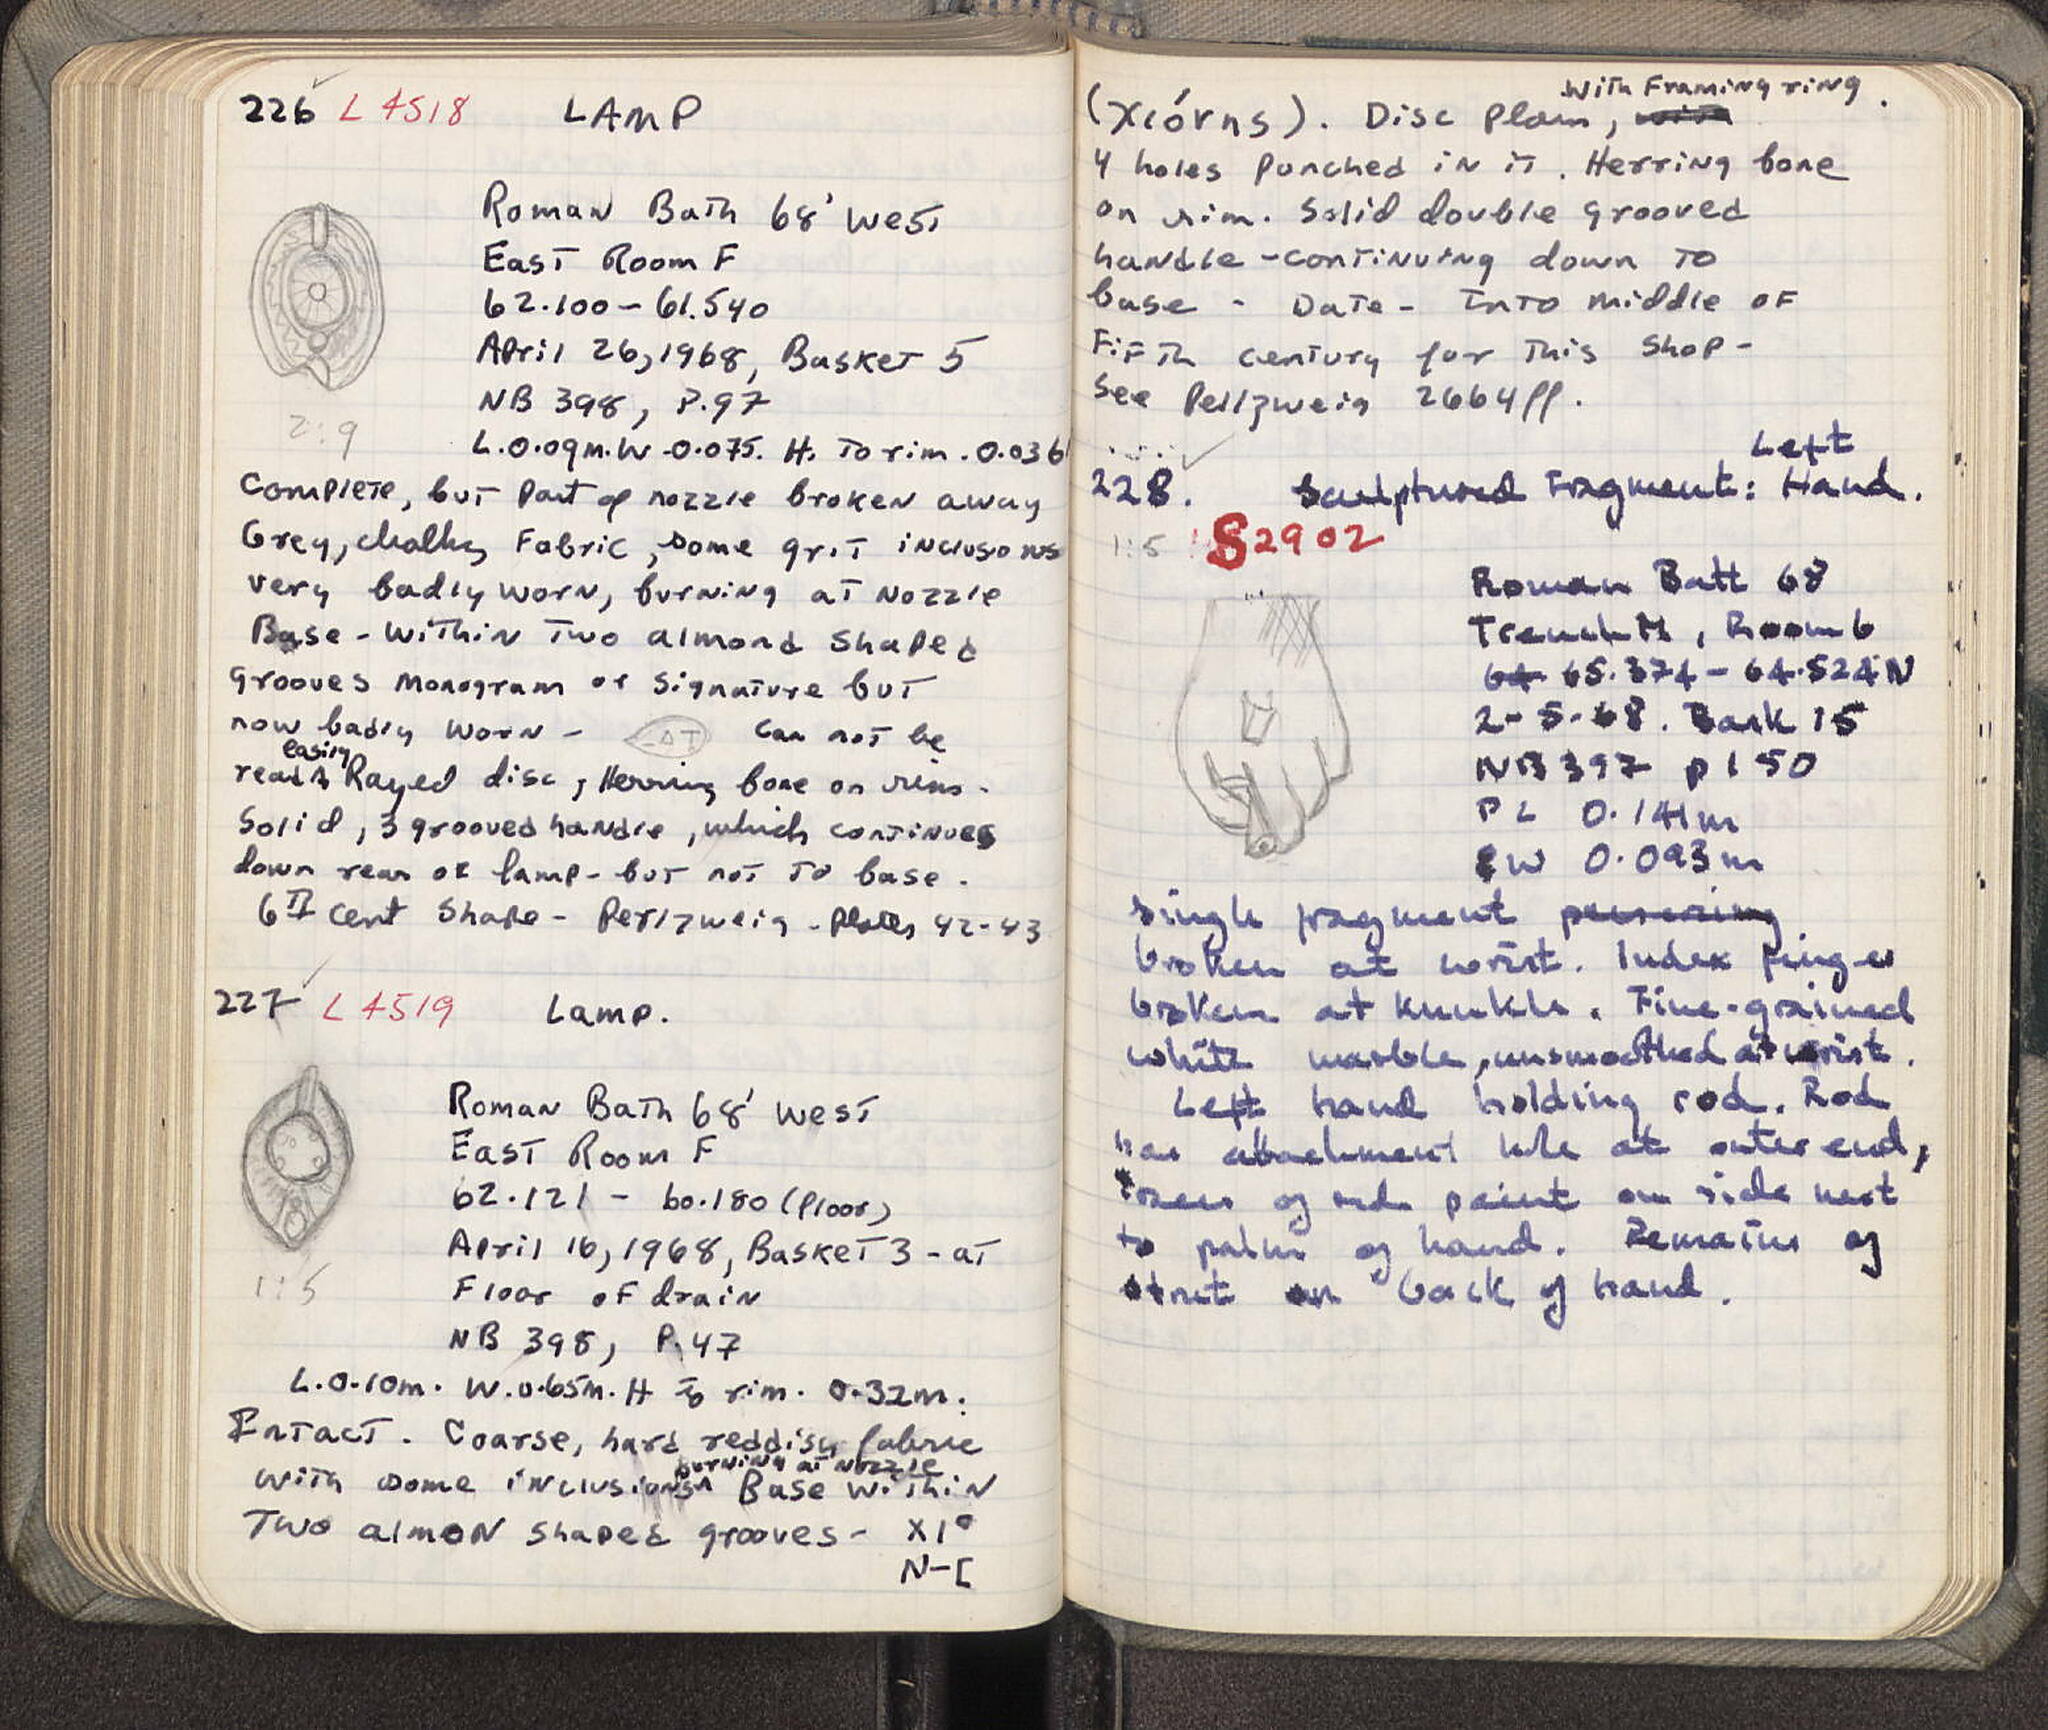 226 L 4518 LAMP
Roman Bath 68' West
East Room F
62.100 - 61.540
April 26, 1968, Basket 5
NB 398, P.97
2:9
L.0.09m. W-0.075. H. To rim. 0.036
Complete, but Part of nozzle broken away
Grey, chalky Fabric, some grit inclusions
very badly worn, burning at Nozzle
Base - Within Two almond shaped
grooves monogram or signature but
now badly worn - -ΔT Can not be
easily
read Rayed disc, Herring bone on rim.
Solid, 3 grooved handle, which continues
down rear of lamp - but not to base.
6th cent Shape - Perlzweig - Plates 42-43
227 L 4519 Lamp.
Roman Bath 68' West
East Room F
62.121 - 60.180 (floor)
April 16, 1968, Basket 3 - at
1:5
Floor of drain
NB 398, P.47
L.0.10m. W.0.65m. H to rim. 0.32m.
Intact. Coarse, hard reddish fabric
burning at nozzle
with some inclusions Base within
Two almon shaped grooves - XIο
N-[
With Framing ring.
(Χιόνης). Disc Plain, with
4 holes punched in it. Herring bone
on rim. Solid double grooved
handle - continuing down To
base - Date - Into middle of
Fifth century for This Shop -
See Perlzweig 2664ff.
Left
228. Sculptured Fragment: Hand.
1:5 S2902
Roman Batt 68
Trench M, Room 6
64 65.374 - 64.524 N
2-5-68. Bask 15
NB 397 p 150
PL 0.141m
W 0.093m
Single fragment preserving
broken at wrist. Index finger
broken at knuckle. Fine-grained
white marble, unsmoothed at wrist.
Left hand holding rod. Rod
has attachment hole at outer end,
traces of red paint on side next
to palm of hand. Remains of
strut on back of hand.